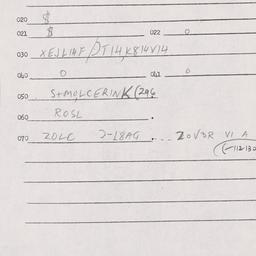 020 $
021 $ 022 0
030 XEJL14F/JT14,K814V14
040 0 041 0
050 S+MOLCERINK(296
060 ROSL .
070 ZOLC J-L8AG . . . ZOV3R VI A